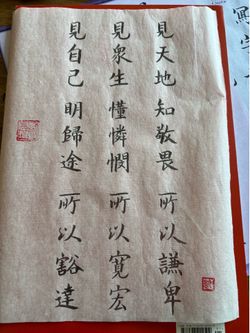 見天地 知敬畏 所以謙卑
見眾生 懂憐憫 所以寬宏
見自己 明歸途 所以豁達